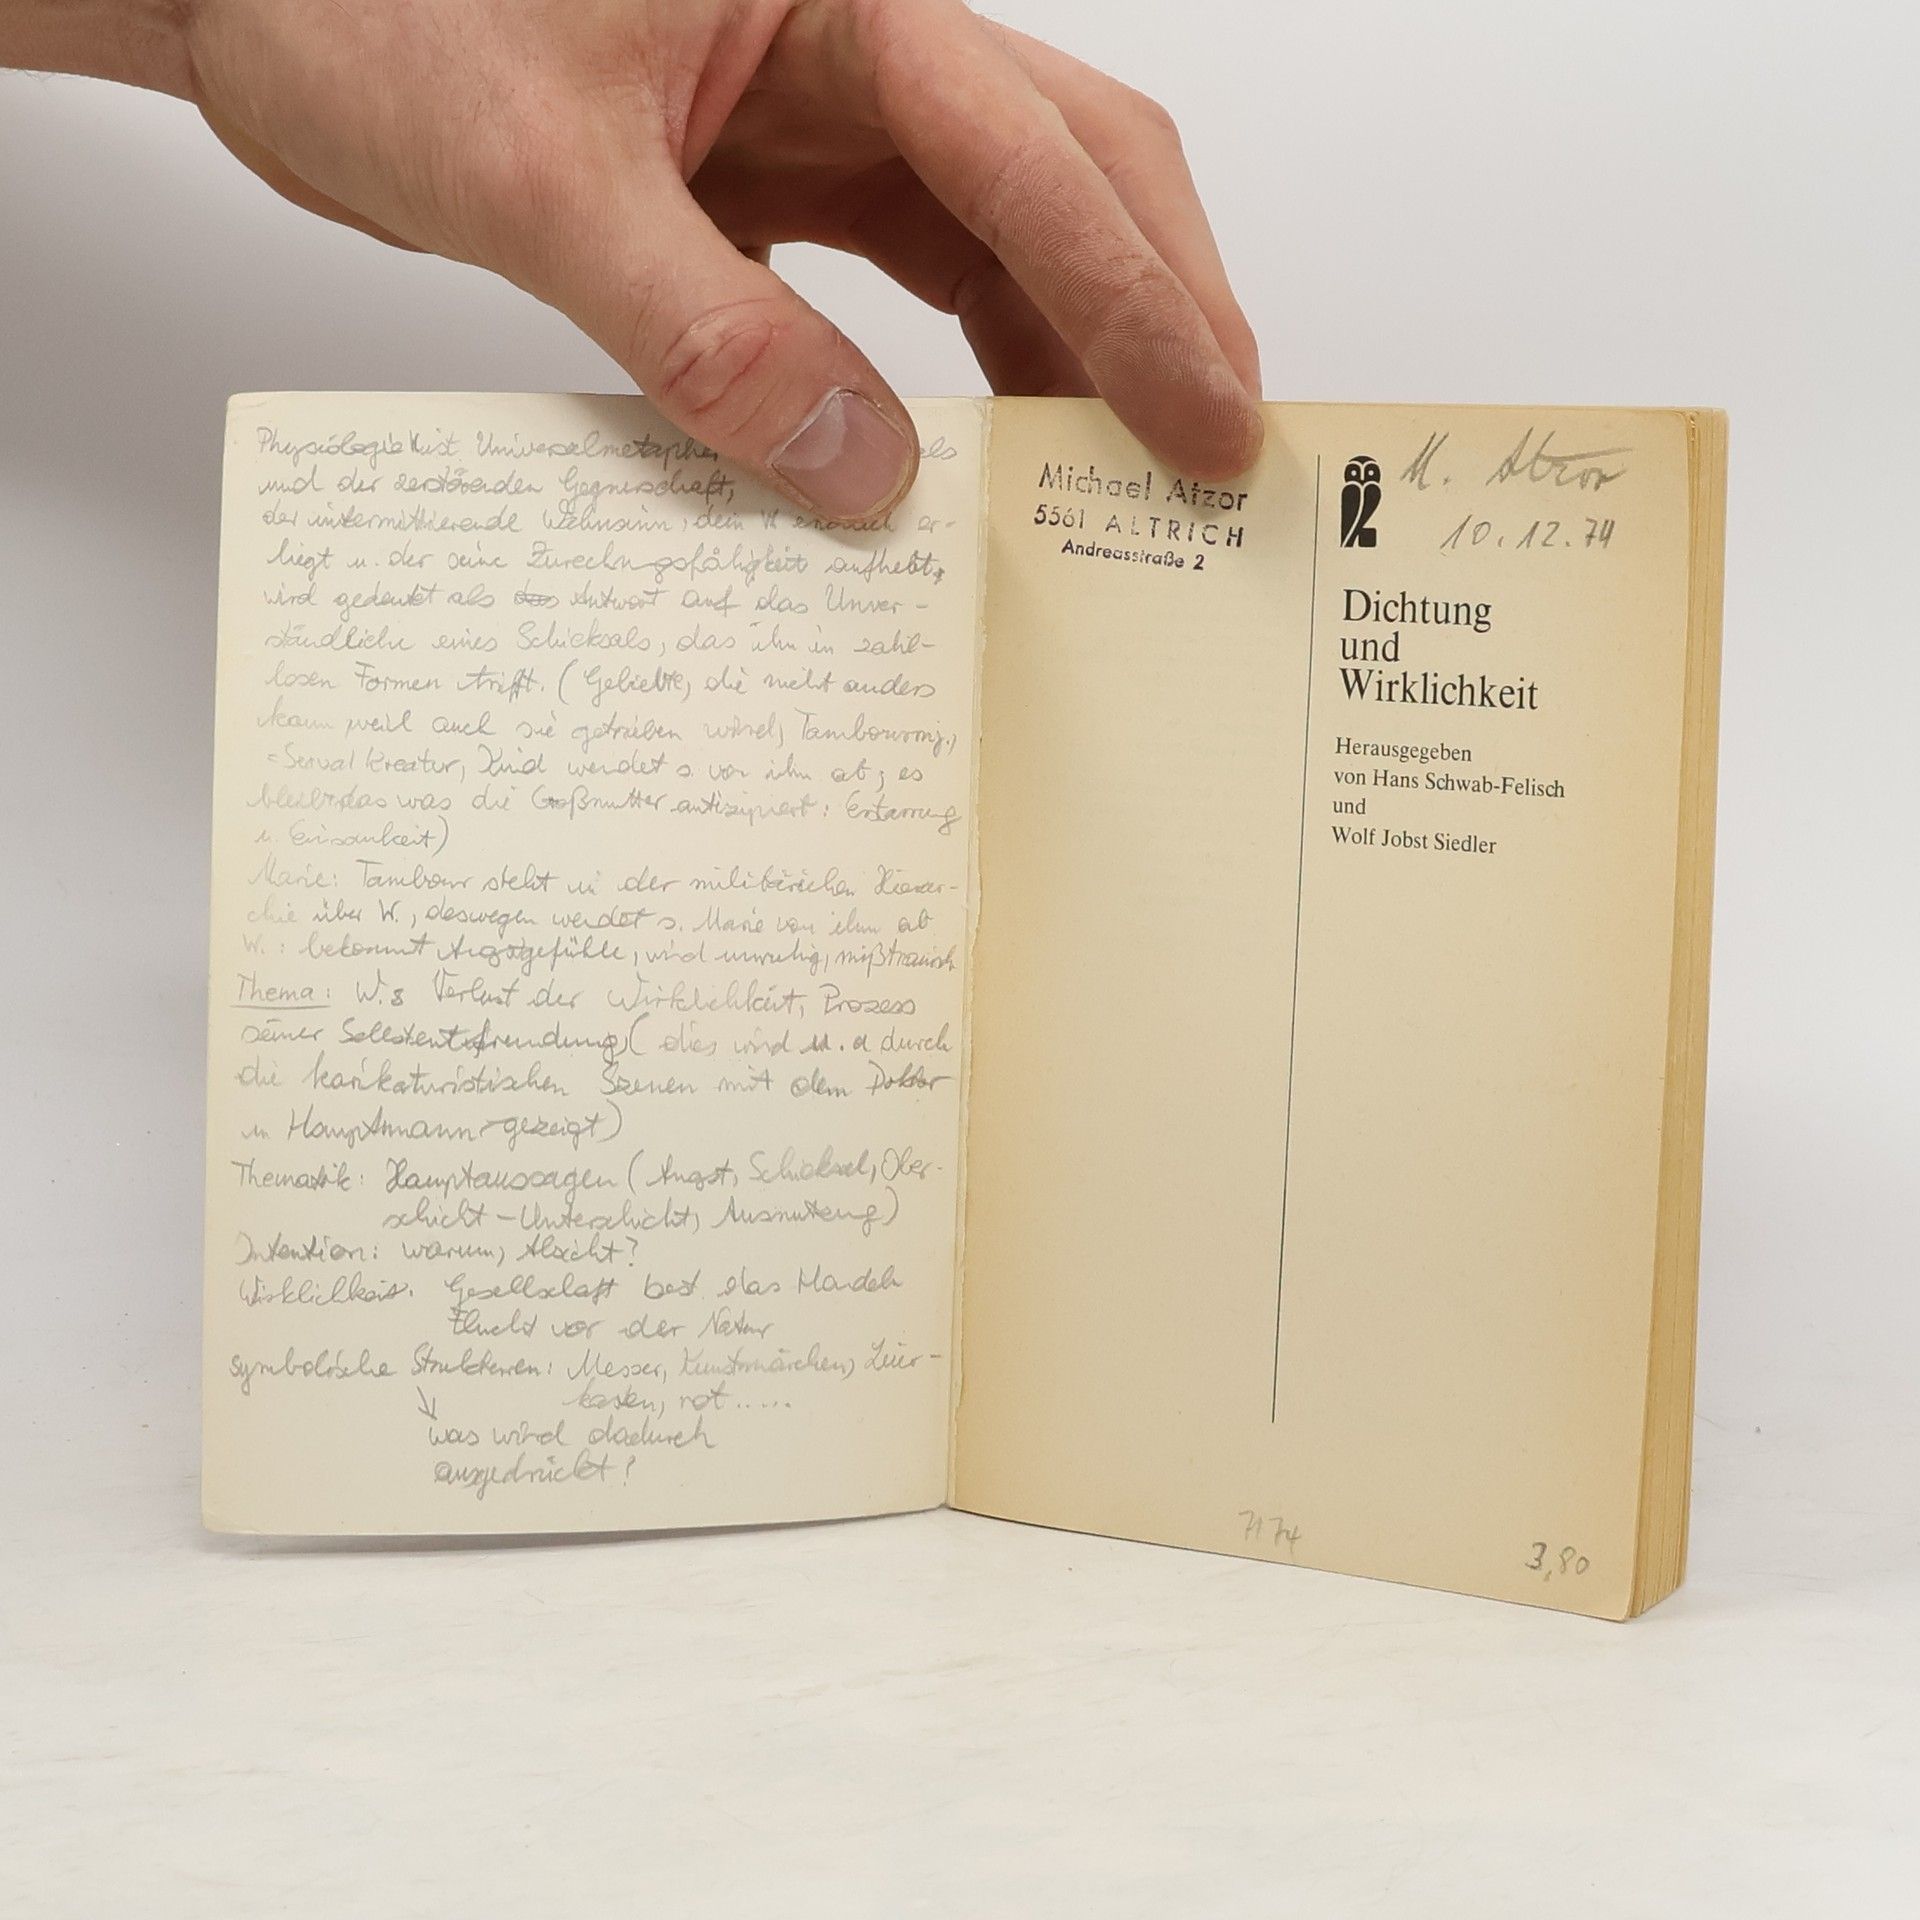 Physiologie ist Universalmetapher
und der zerstörenden Gegnerschaft,
der intermittierende Wahnsinn, dem W er-
liegt u. der seine Zurechnungsfähigkeit aufhebt,
wird gedeutet als das Antwort auf das Unver-
ständliche eines Schicksals, das ihn in zahl-
losen Formen trifft. (Geliebte, die nicht anders
kann weil auch sie getrieben wird, Tambourmj.,
Kreatur, Kind wendet s. von ihm ab; es
bleibt das was die Großmutter antizipiert: Erstarrung
u. Einsamkeit)
Marie: Tambour steht in der militärischen Hierar-
chie über W., deswegen wendet s. Marie von ihm ab
W.: bekommt Angstgefühle, wird unruhig, mißtrauisch
Thema: W.s Verlust der Wirklichkeit, Prozess
seiner Selbstentfremdung (dies wird u. a durch
die karikaturistischen Szenen mit dem Doktor
u Hauptmann gezeigt)
Thematik: Hauptaussagen (Angst, Schicksal, Ober-
schicht - Unterschicht, Ausnutzung)
Intention: warum, Absicht?
Wirklichkeit. Gesellschaft best. das Handeln
Flucht vor der Natur
symbolische Strukturen: Messer, Kunstmärchen, Leier-
kasten, rot.....
was wird dadurch
ausgedrückt?
Michael Atzor
5561 ALTRICH
Andreasstraße 2
M. Atzor
10.12.74
Dichtung
und
Wirklichkeit
Herausgegeben
von Hans Schwab-Felisch
und
Wolf Jobst Siedler
3,80